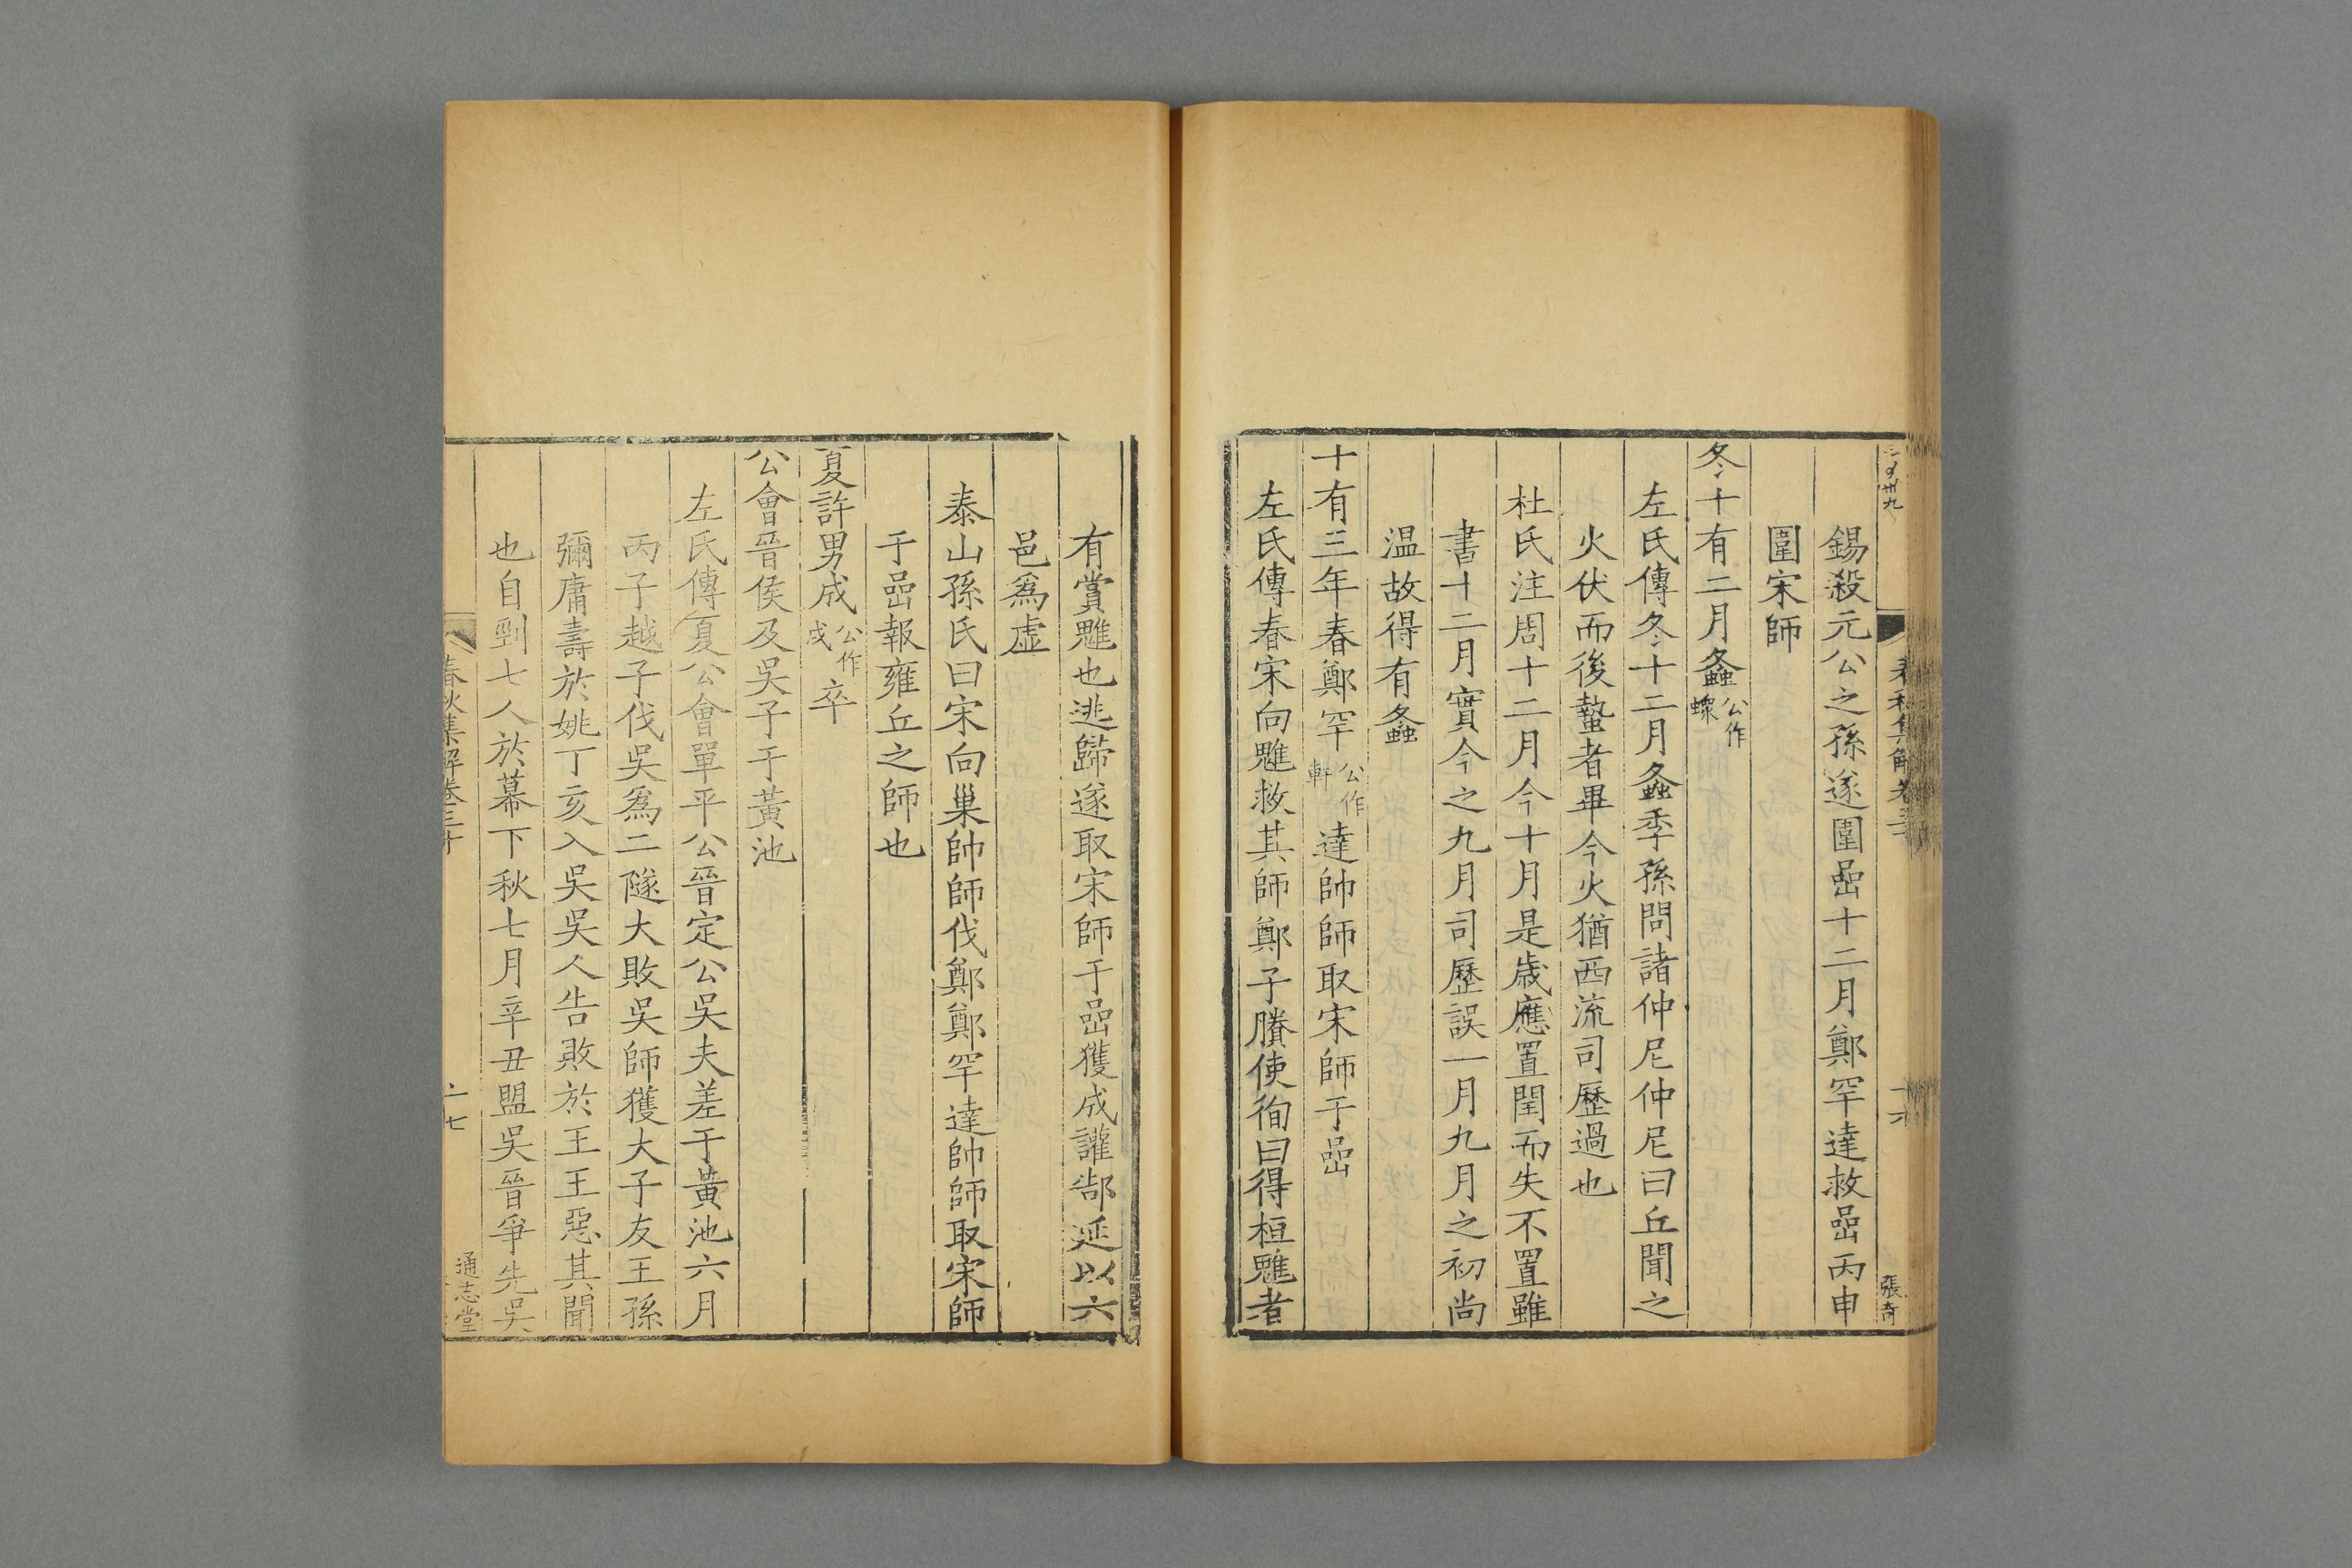 春秋集解卷三十
張奇
錫殺元公之孫遂圍嵒十二月鄭罕達救嵒丙申
圍宋師
冬十有二月螽公作䗥
左氏傳冬十二月螽季孫問諸仲尼仲尼曰丘聞之
火伏而後蟄者畢今火猶西流司歷過也
杜氏注周十二月今十月是歲應置閏而失不置雖
書十二月實今之九月司歷誤一月九月之初尚
温故得有螽
十有三年春鄭罕公作軒達帥師取宋師于嵒
左氏傳春宋向魋救其師鄭子賸使徇曰得桓魋者
有賞魋也逃歸遂取宋師于嵒獲成讙郜延以六
邑爲虛
泰山孫氏曰宋向巢帥師伐鄭鄭罕達帥師取宋師
于嵒報雍丘之師也
夏許男成公作戍卒
公會晉侯及吳子于黃池
左氏傳夏公會單平公晉定公吳夫差于黃池六月
丙子越子伐吳爲二隧大敗吳師獲大子友王孫
彌庸壽於姚丁亥入吳吳人告敗於王王惡其聞
也自剄七人於幕下秋七月辛丑盟吳晉爭先吳
春秋集解卷三十
十七
通志堂